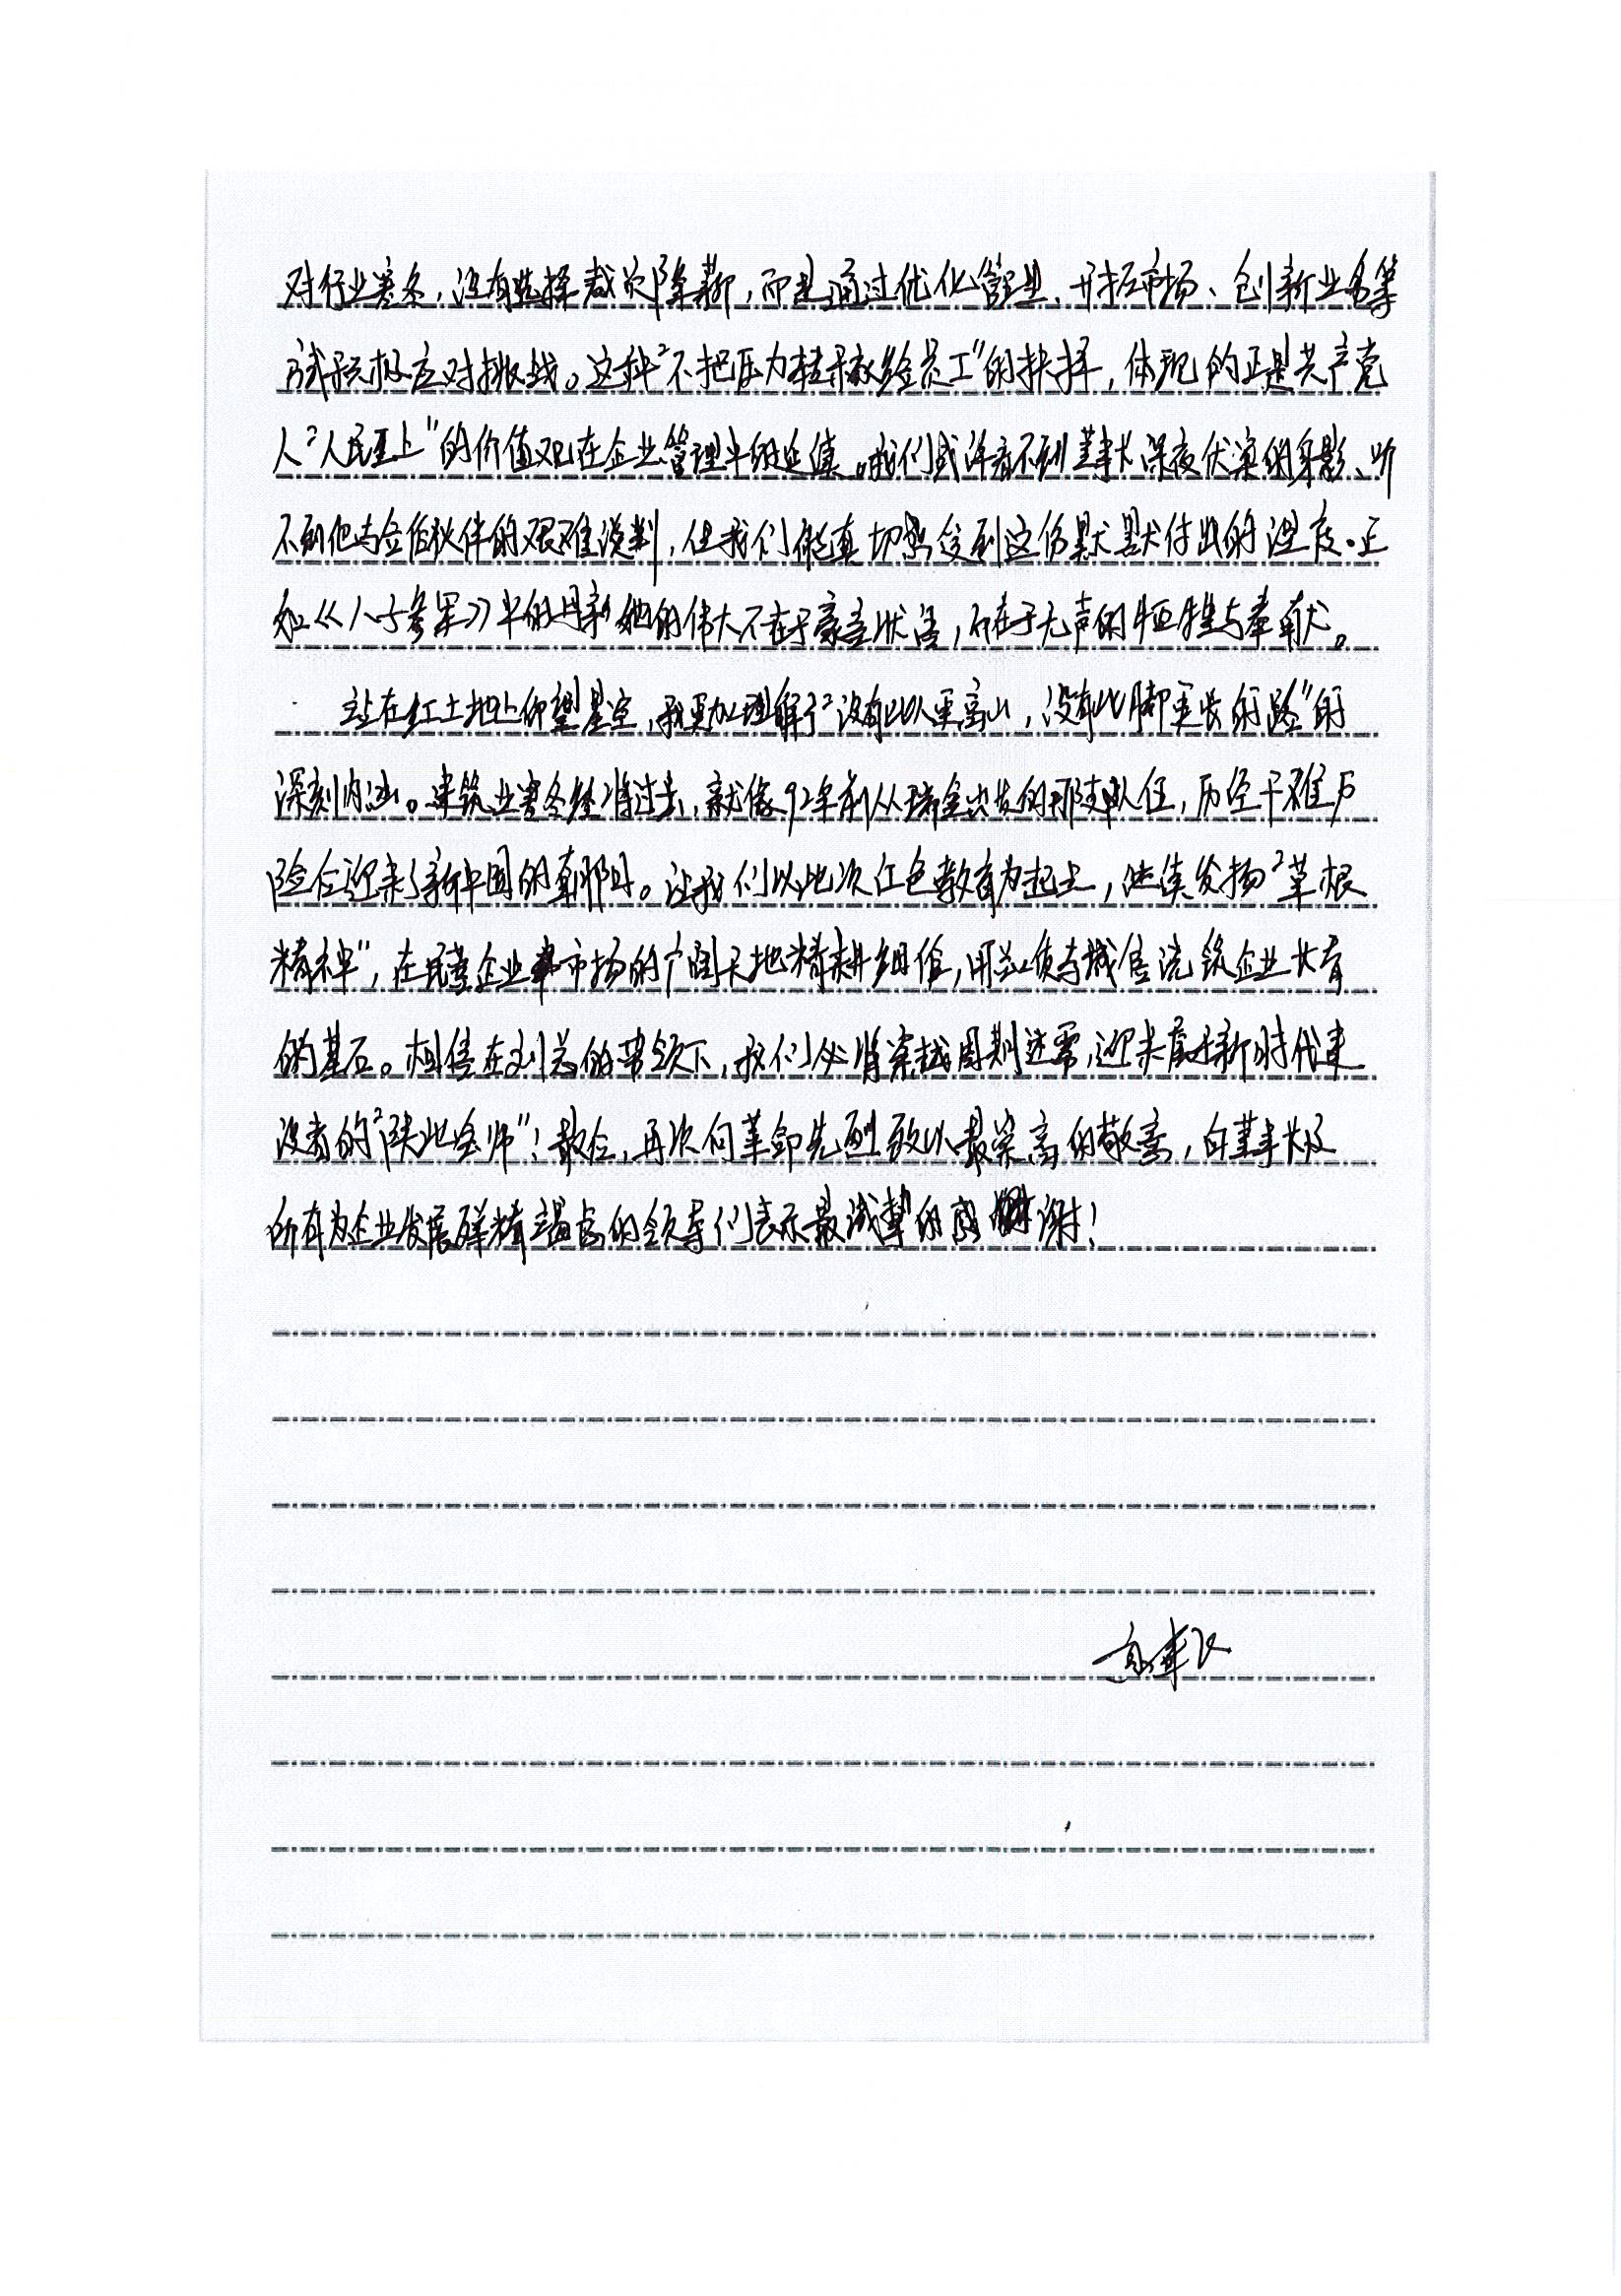 对行业寒冬,没有选择裁员降薪,而是通过优化管理、开拓市场、创新业务等
方式积极应对挑战。这种"不把压力转嫁给员工"的抉择,体现的正是共产党
人"人民至上"的价值观在企业管理中的延续。我们或许看不到董事长深夜伏案的身影、听
不到他与合作伙伴的艰难谈判,但我们能真切感受到这份默默付出的温度。正
如《八子参军》中的母亲她的伟大不在于豪言壮语,而在于无声的牺牲与奉献。
站在红土地上仰望星空,我更加理解了"没有比人更高山,没有比脚更长的路"的
深刻内涵。建筑业寒冬终将过去,就像92年前从瑞金出发的那支队伍,历经千难万
险后迎来了新中国的朝阳。让我们以此次红色教育为起点,继续发扬"草根
精神",在民营企业市场的广阔天地精耕细作,用品质与诚信浇筑企业长青
的基石。相信在刘总的带领下,我们必将穿越周期迷雾,迎来属于新时代建
设者的"陕北会师"!最后,再次向革命先烈致以最崇高的敬意,向董事长及
所有为企业发展殚精竭虑的领导们表示最诚挚的感谢!